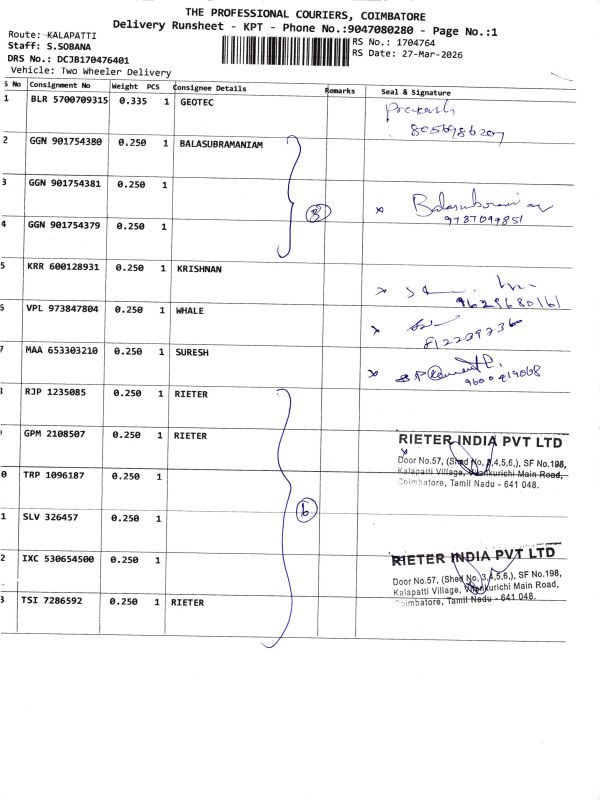 THE PROFESSIONAL COURIERS, COIMBATORE
Delivery Runsheet - KPT - Phone No.:9047080280 - Page No.:1
Route: KALAPATTI
Staff: S.SOBANA
DRS No.: DCJB170476401
Vehicle: Two Wheeler Delivery
RS No.: 1704764
RS Date: 27-Mar-2026
S No Consignment No Weight PCS Consignee Details Remarks Seal & Signature
1 BLR 5700709315 0.335 1 GEOTEC Prakash
8056986207
2 GGN 901754380 0.250 1 BALASUBRAMANIAM
3 GGN 901754381 0.250 1
3
9787099851
4 GGN 901754379 0.250 1
5 KRR 600128931 0.250 1 KRISHNAN
9629680161
6 VPL 973847804 0.250 1 WHALE
7 MAA 653303210 0.250 1 SURESH
8 RJP 1235085 0.250 1 RIETER
9 GPM 2108507 0.250 1 RIETER
RIETER INDIA PVT LTD
Door No.57, (Shed No. 3,4,5,6,), SF No.198,
Kalapatti Village, Vilankurichi Main Road,
Coimbatore, Tamil Nadu - 641 048.
0 TRP 1096187 0.250 1
1 SLV 326457 0.250 1
6
2 IXC 530654500 0.250 1
RIETER INDIA PVT LTD
Door No.57, (Shed No. 3,4,5,6,), SF No.198,
Kalapatti Village, Vilankurichi Main Road,
Coimbatore, Tamil Nadu - 641 048.
3 TSI 7286592 0.250 1 RIETER